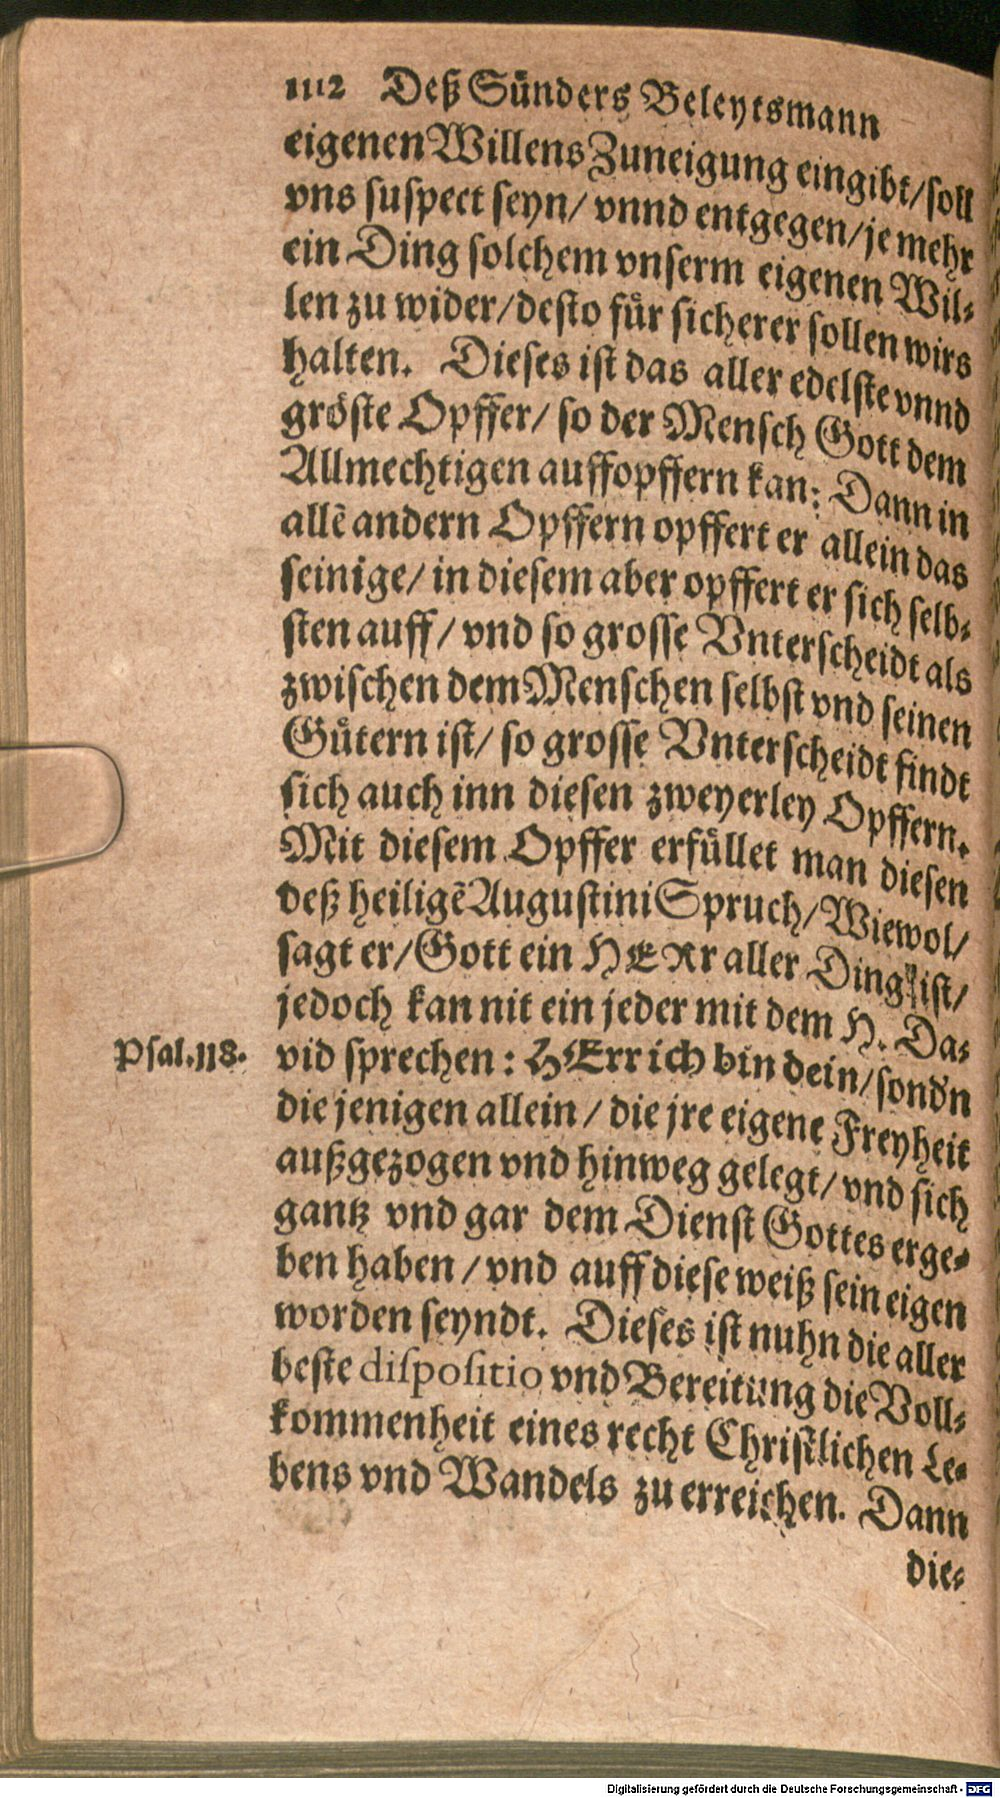 1112 Deß Sünders Beleytsmann
eigenen Willens Zuneigung eingibt/ soll
vns suspect seyn/ vnnd entgegen/ je mehr
ein Ding solchem vnserm eigenen Wil-
len zu wider/ desto für sicherer sollen wirs
halten. Dieses ist das aller edelste vnnd
gröste Opffer/ so der Mensch Gott dem
Allmechtigen auffopffern kan: Dann in
allē andern Opffern opffert er allein das
seinige/ in diesem aber opffert er sich selb-
sten auff/ vnd so grosse Vnterscheidt als
zwischen dem Menschen selbst vnd seinen
Gütern ist/ so grosse Vnterscheidt findt
sich auch inn diesen zweyerley Opffern.
Mit diesem Opffer erfüllet man diesen
deß heiligē Augustini Spruch/ Wiewol/
sagt er/ Gott ein HERr aller Ding ist/
jedoch kan nit ein jeder mit dem H. Da-
Psal.118. vid sprechen: HErr ich bin dein/ sond'n
die jenigen allein/ die jre eigene Freyheit
außgezogen vnd hinweg gelegt/ vnd sich
gantz vnd gar dem Dienst Gottes erge-
ben haben/ vnd auff diese weiß sein eigen
worden seyndt. Dieses ist nuhn die aller
beste dispositio vnd Bereitung die Voll-
kommenheit eines recht Christlichen Le-
bens vnd Wandels zu erreichen. Dann
die-
Digitalisierung gefördert durch die Deutsche Forschungsgemeinschaft - DFG